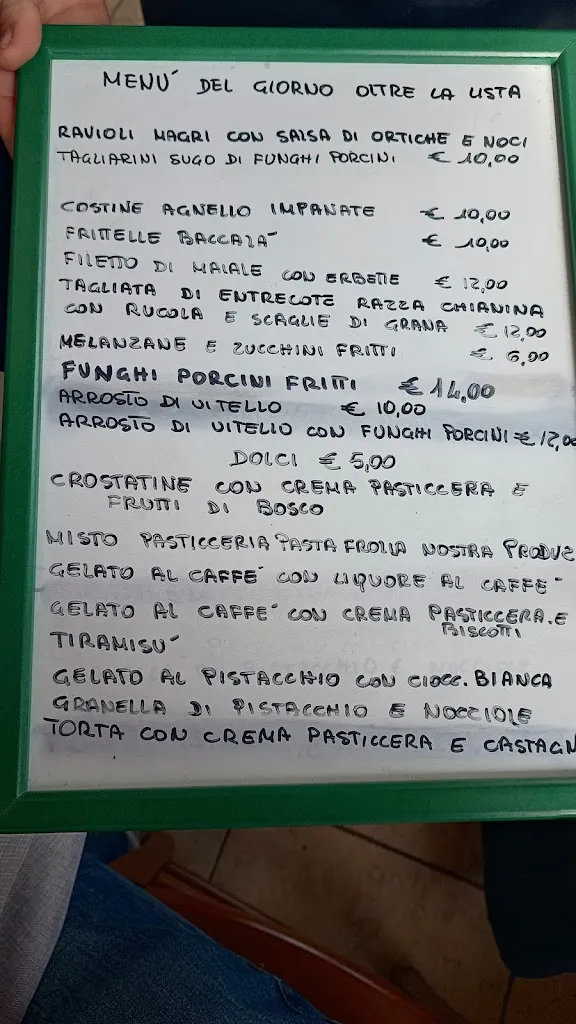 MENU´ DEL GIORNO OLTRE LA LISTA
RAVIOLI MAGRI CON SALSA DI ORTICHE E NOCI
TAGLIARINI SUGO DI FUNGHI PORCINI € 10,00
COSTINE AGNELLO IMPANATE € 10,00
FRITTELLE BACCALA´ € 10,00
FILETTO DI MAIALE CON ERBETTE € 12,00
TAGLIATA DI ENTRECOTE RAZZA CHIANINA
CON RUCOLA E SCAGLIE DI GRANA € 12,00
MELANZANE E ZUCCHINI FRITTI € 6,00
FUNGHI PORCINI FRITTI € 14,00
ARROSTO DI VITELLO € 10,00
ARROSTO DI VITELLO CON FUNGHI PORCINI € 12,00
DOLCI € 5,00
CROSTATINE CON CREMA PASTICCERA E
FRUTTI DI BOSCO
MISTO PASTICCERIA PASTA FROLLA NOSTRA PRODUZ
GELATO AL CAFFE´ CON LIQUORE AL CAFFE´
GELATO AL CAFFE´ CON CREMA PASTICCERA E
BISCOTTI
TIRAMISU´
GELATO AL PISTACCHIO CON CIOCC. BIANCA
GRANELLA DI PISTACCHIO E NOCCIOLE
TORTA CON CREMA PASTICCERA E CASTAGN